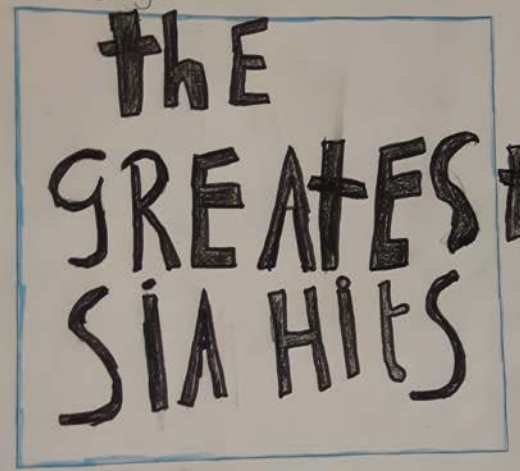 thE
gREAtESt
SiA HitS